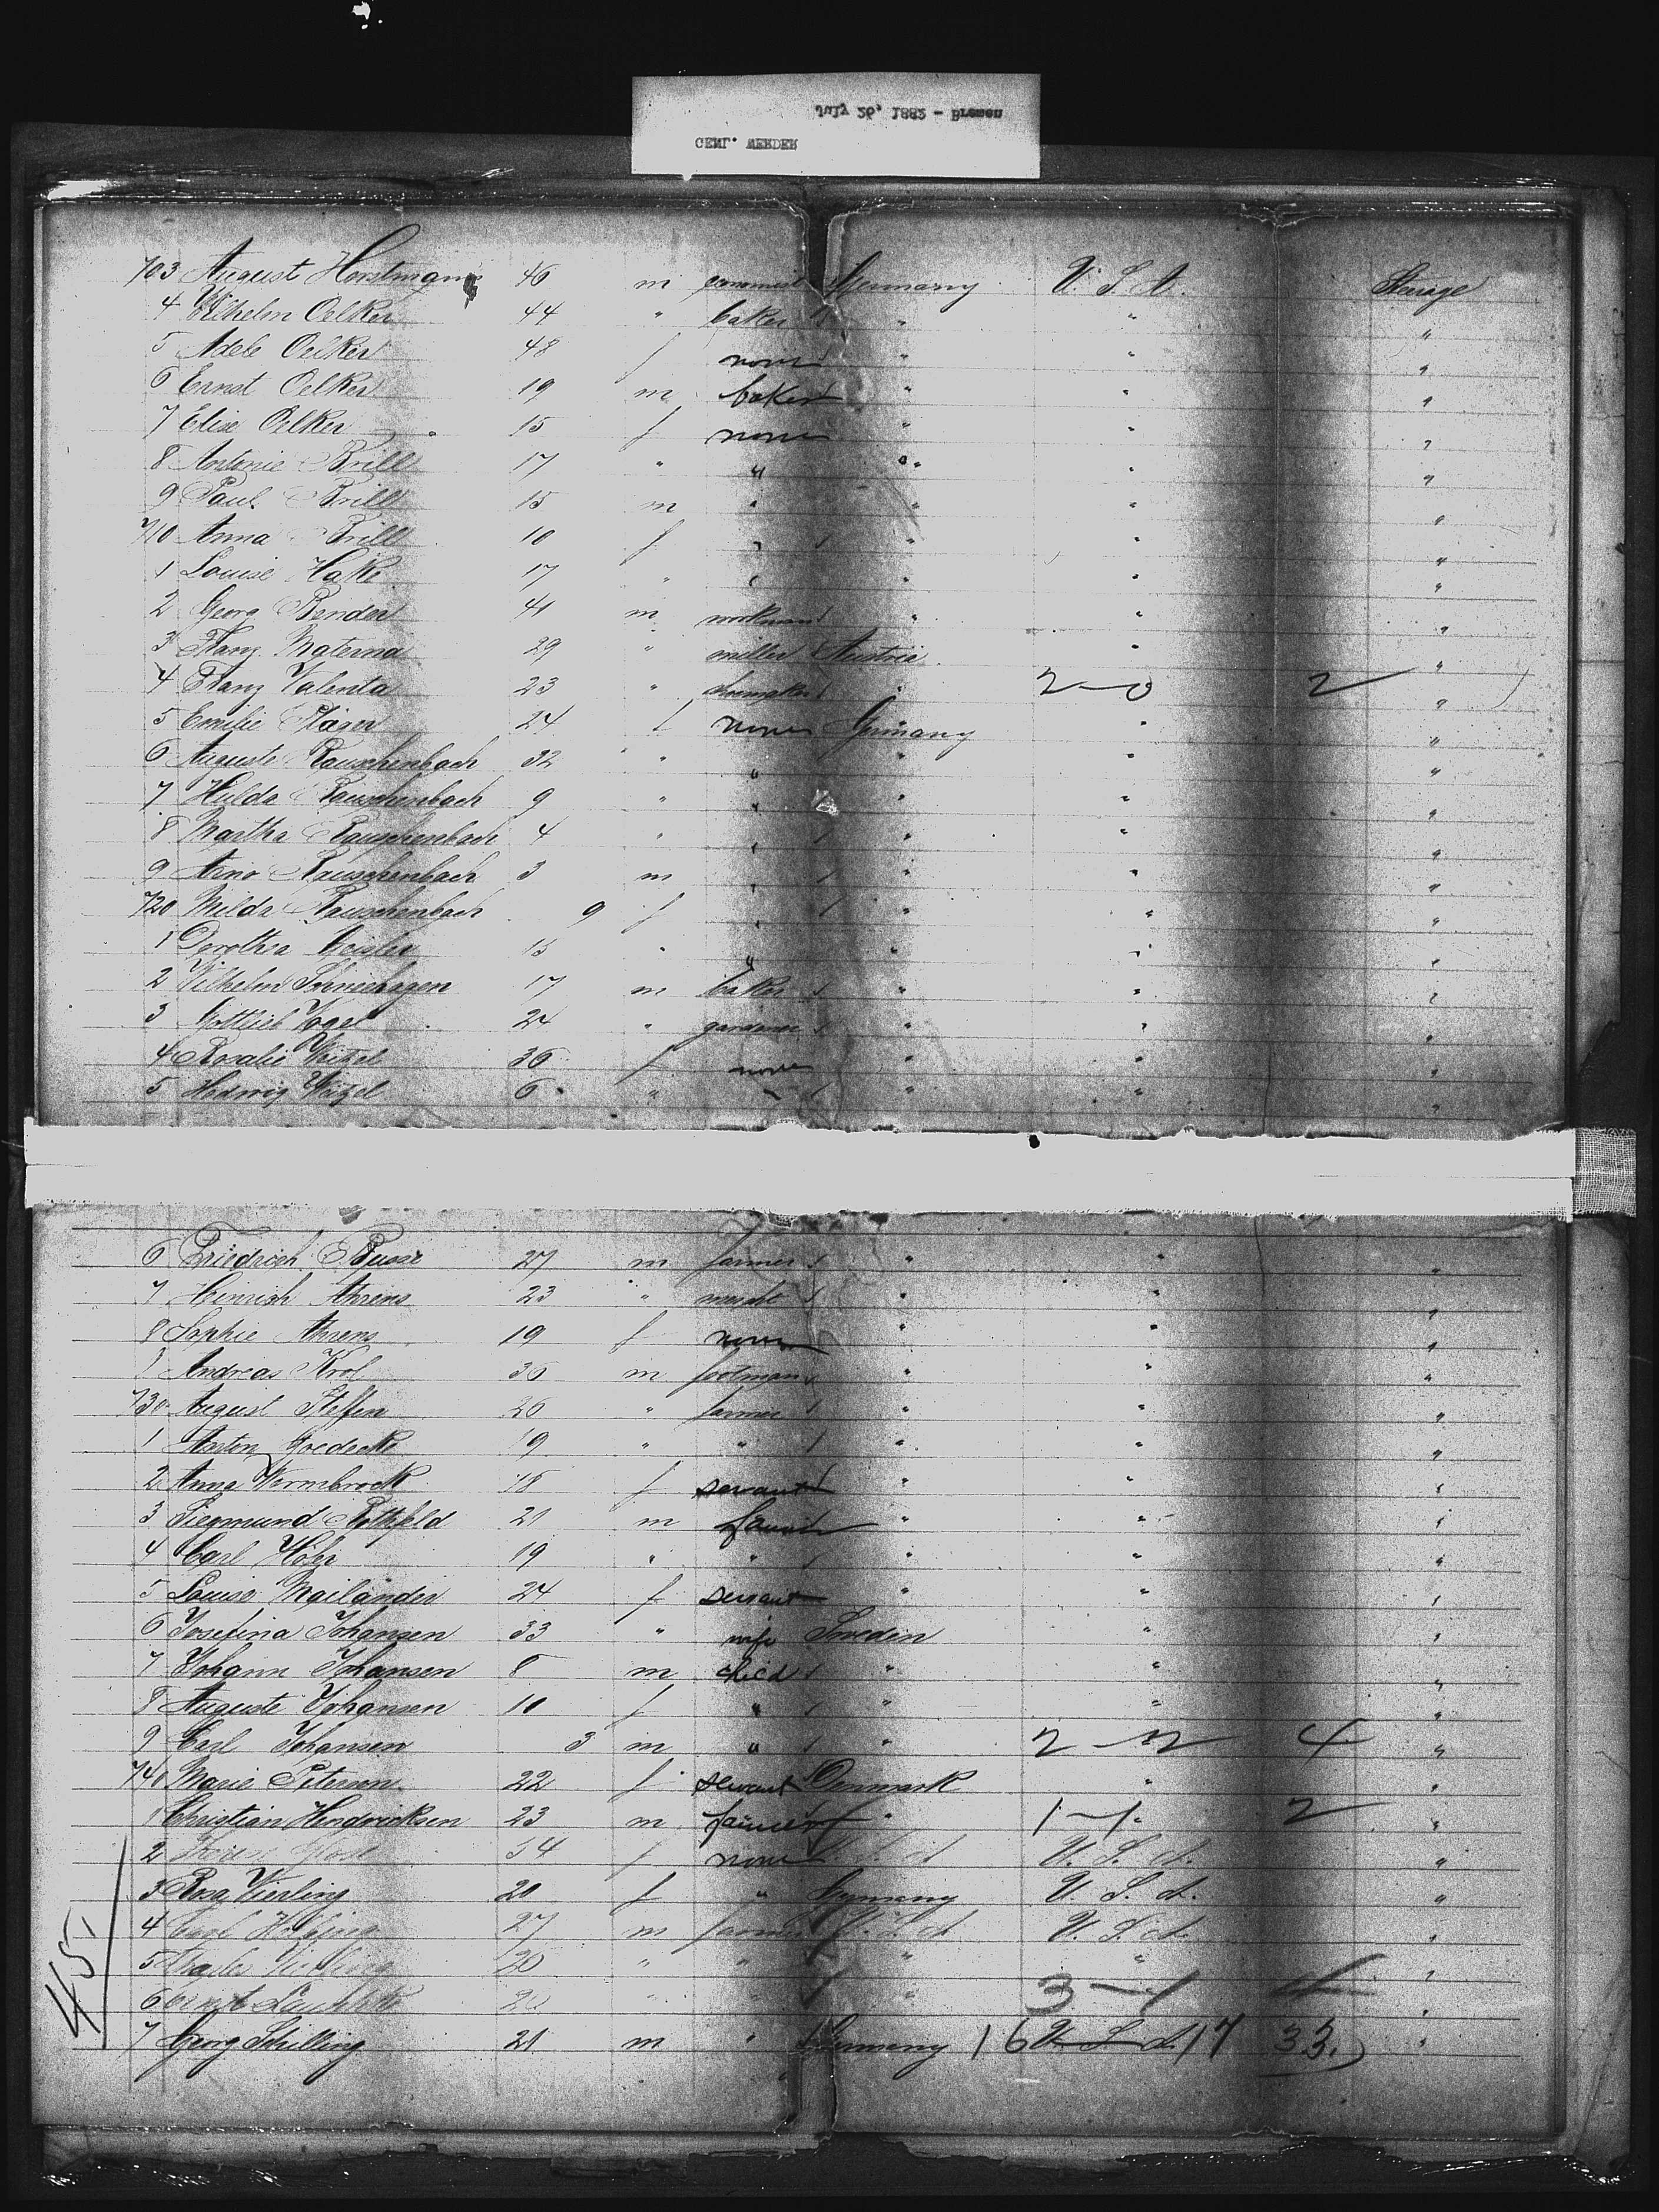 July 26, 1882 - Bremen
GENL. WERDER
703 August Horstmann 46 m Germany U. S. A. Steerage
4 Wilhelm Oelker 44 " baker " " "
5 Adele Oelker 48 f none " " "
6 Ernst Oelker 19 m baker " " "
7 Elise Oelker 15 f none " " "
8 Antonie Brill 17 " " " " "
9 Paul Brill 15 m " " " "
710 Anna Brill 10 f " " " "
1 Louise Hake 17 " " " " "
2 Georg Bender 41 m workman " " "
3 Franz Materna 29 " miller Austria " "
4 Franz Valenta 23 " shoemaker " 2-0 2 "
5 Emilie 24 f none Germany " "
6 Auguste Rauschenbach 32 " " " " "
7 Hulda Rauschenbach 9 " " " " "
8 Martha Rauschenbach 4 " " " " "
9 Arno Rauschenbach 3 m " " " "
720 Milda Rauschenbach 9 f " " " "
1 Dorothea 15 " " " " "
2 Wilhelm 17 m baker " " "
3 Gottlieb Vogel 24 " gardener " " "
4 Rosalie Weitzel 36 f none " " "
5 Hedwig Weitzel 6 " " " " "
6 Friedrich 27 m farmer " " "
7 Heinrich Ahrens 23 " " " "
8 Sophie Ahrens 19 f none " " "
9 Andreas Krol 36 m footman " " "
730 August Steffen 26 " farmer " " "
1 Anton Goedecke 19 " " " " "
2 Anna Wermbrock 18 f servant " " "
3 Siegmund Rothfeld 21 m farmer " " "
4 Carl Höhr 19 " " " " "
5 Louise Mailänder 24 f servant " " "
6 Josefina Johansen 33 " wife Sweden " "
7 Johann Johansen 8 m child " " "
8 Auguste Johansen 10 f " " " "
9 Carl Johansen 3 m " " 2-2 4 "
740 Marie Peterson 22 f servant Denmark " "
1 Christian Hendricksen 23 m farmer " 1-1 2 "
2 34 f none U. S. A. U. S. A. "
3 Rosa Vierling 20 f " Germany U. S. A. "
4 Carl 27 m farmer U. S. A. U. S. A. "
5 Charles 20 " " " " "
6 " " " 3-1 4 "
7 Georg Schilling 21 m " Germany 16 U. S. A. 17 33 "
45